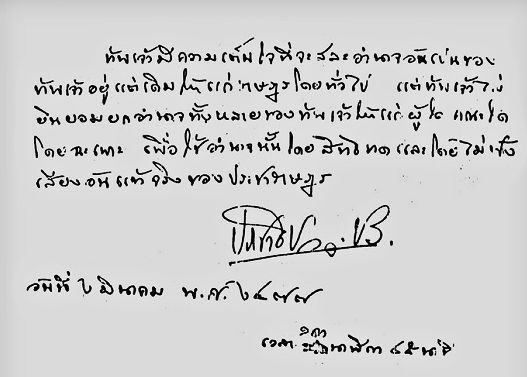 ข้าพเจ้ามีความเต็มใจที่จะสละอำนาจอันเป็นของ
ข้าพเจ้าอยู่แต่เดิมให้แก่ราษฎรโดยทั่วไป แต่ข้าพเจ้าไม่
ยินยอมยกอำนาจทั้งหลายของข้าพเจ้าให้แก่ ผู้ใด คณะใด
โดยฉะเพาะ เพื่อใช้อำนาจนั้นโดยสิทธิขาดและโดยไม่ฟัง
เสียงอันแท้จริงของประชาราษฎร
ประชาธิปก. ปร.
วันที่ ๒ มีนาคม พ.ศ. ๒๔๗๗
เวลา นาฬิกา ๔๕ นาที